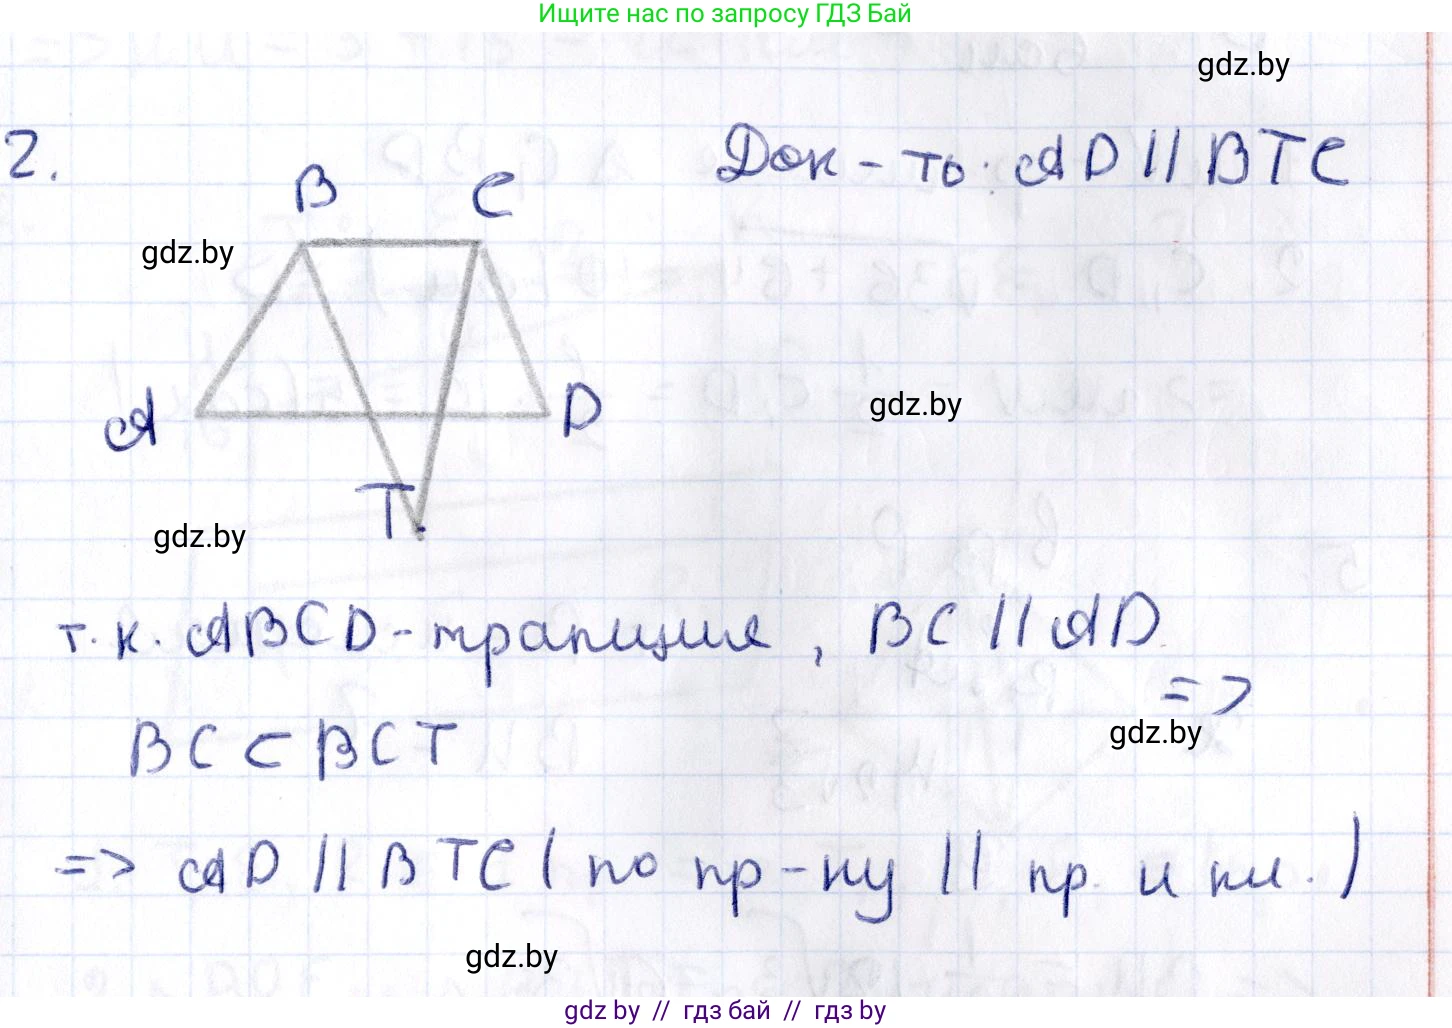 Ищите нас по запросу ГДЗ Бай
gdz.by
2.
Док-ть: AD || BTC
B C
gdz.by
A D
gdz.by
T
gdz.by
т.к. ABCD - трапеция, BC || AD
=>
BC ⊂ BCT
gdz.by
=> AD || BTC (по пр-ку || пр. и пл.)
gdz.by
gdz by // гдз бай // гдз by